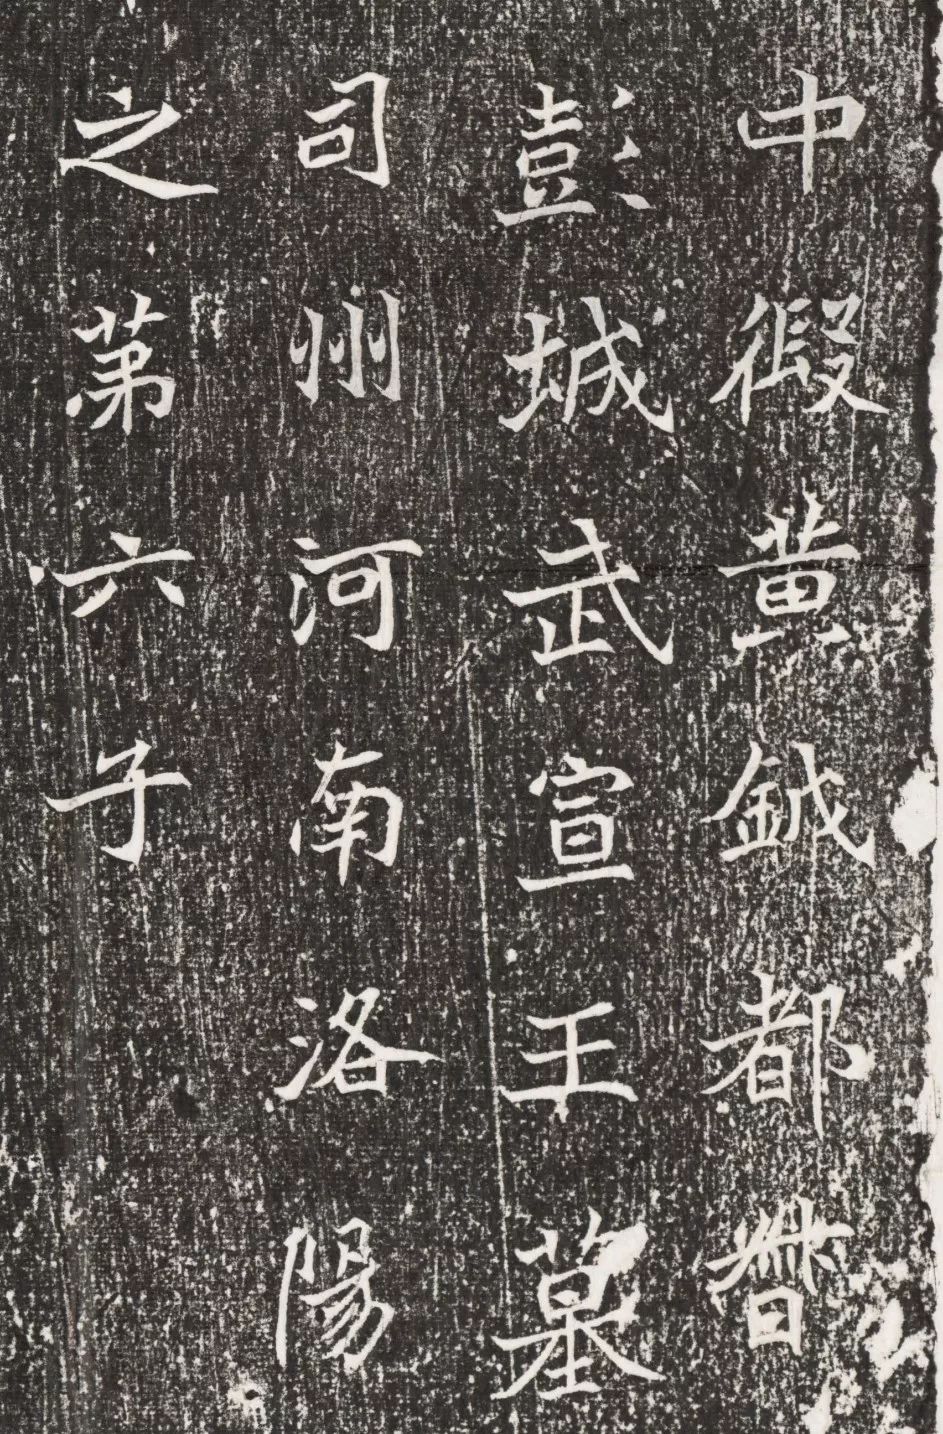 中徦黄鉞都督
彭城武宣王墓
司州河南洛陽
之苐六子